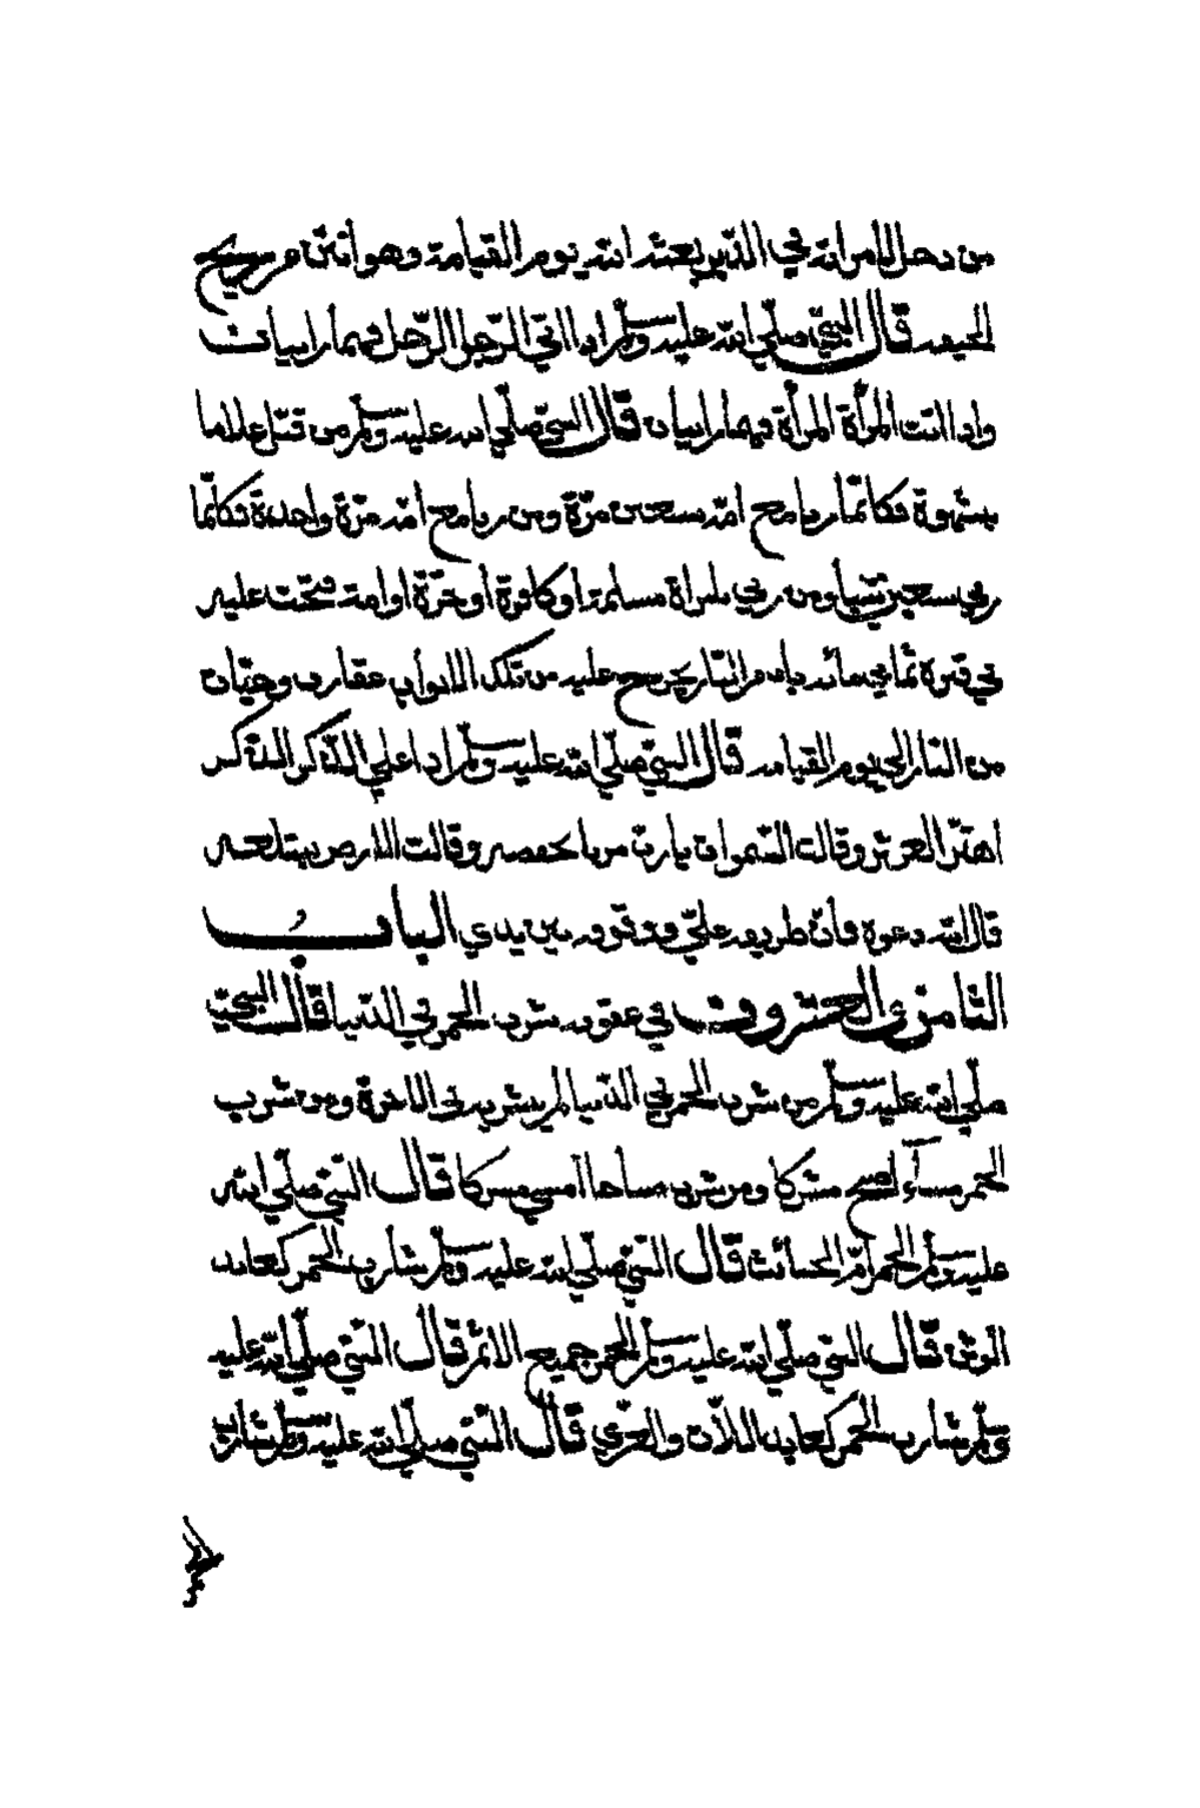 من دخل لامراته في الدبر بعثه الله يوم القيامة وهو انتن من ريح
الجيفه قال النبي صلي الله عليه وسلم اذا اتي الرجل الرجل فهما زانيان
واذا اتت المرأة المرأة فهما زانيان قال النبي صلي الله عليه وسلم من قبل غلاما
بشهوة فكانما زنا مع امه سبعين مرة ومن زنا مع امه مرة واحدة فكانما
زني بسبعين ومن زني بامراة مسلمة او كافرة او حرة او امة فتحت عليه
في قبره ثمانمائه باب من النار يخرج عليه من تلك الابواب عقارب وحيات
من النار الي يوم القيامه قال النبي صلي الله عليه وسلم اذا علي الذكر الذكر
اهتز العرش وقالت السموات يا رب مرنا نحصبه وقالت الارض نبتلعه
قال الله دعوه فان طريقه علي ووقوفه بين يدي الباب
الثامن والعشرون في عقوبه شرب الخمر في الدنيا قال النبي
صلي الله عليه وسلم من شرب الخمر في الدنيا لم يشربه في الاخرة ومن شرب
الخمر مسآء اصبح مشركا ومن شرب صباحا امسي مشركا قال النبي صلي الله
عليه وسلم الخمر ام الخبائث قال النبي صلي الله عليه وسلم شارب الخمر كعابد
الوثن قال النبي صلي الله عليه وسلم الخمر جميع الاثم قال النبي صلي الله عليه
وسلم شارب الخمر كعابد اللات والعزي قال النبي صلي الله عليه وسلم شارب
الخمر